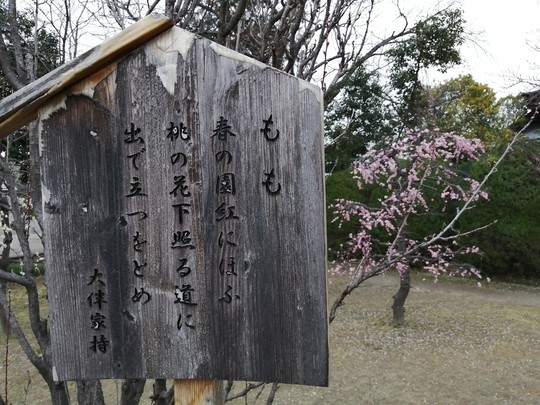 もも
春の園紅にほふ
桃の花下照る道に
出で立つをとめ
大伴家持